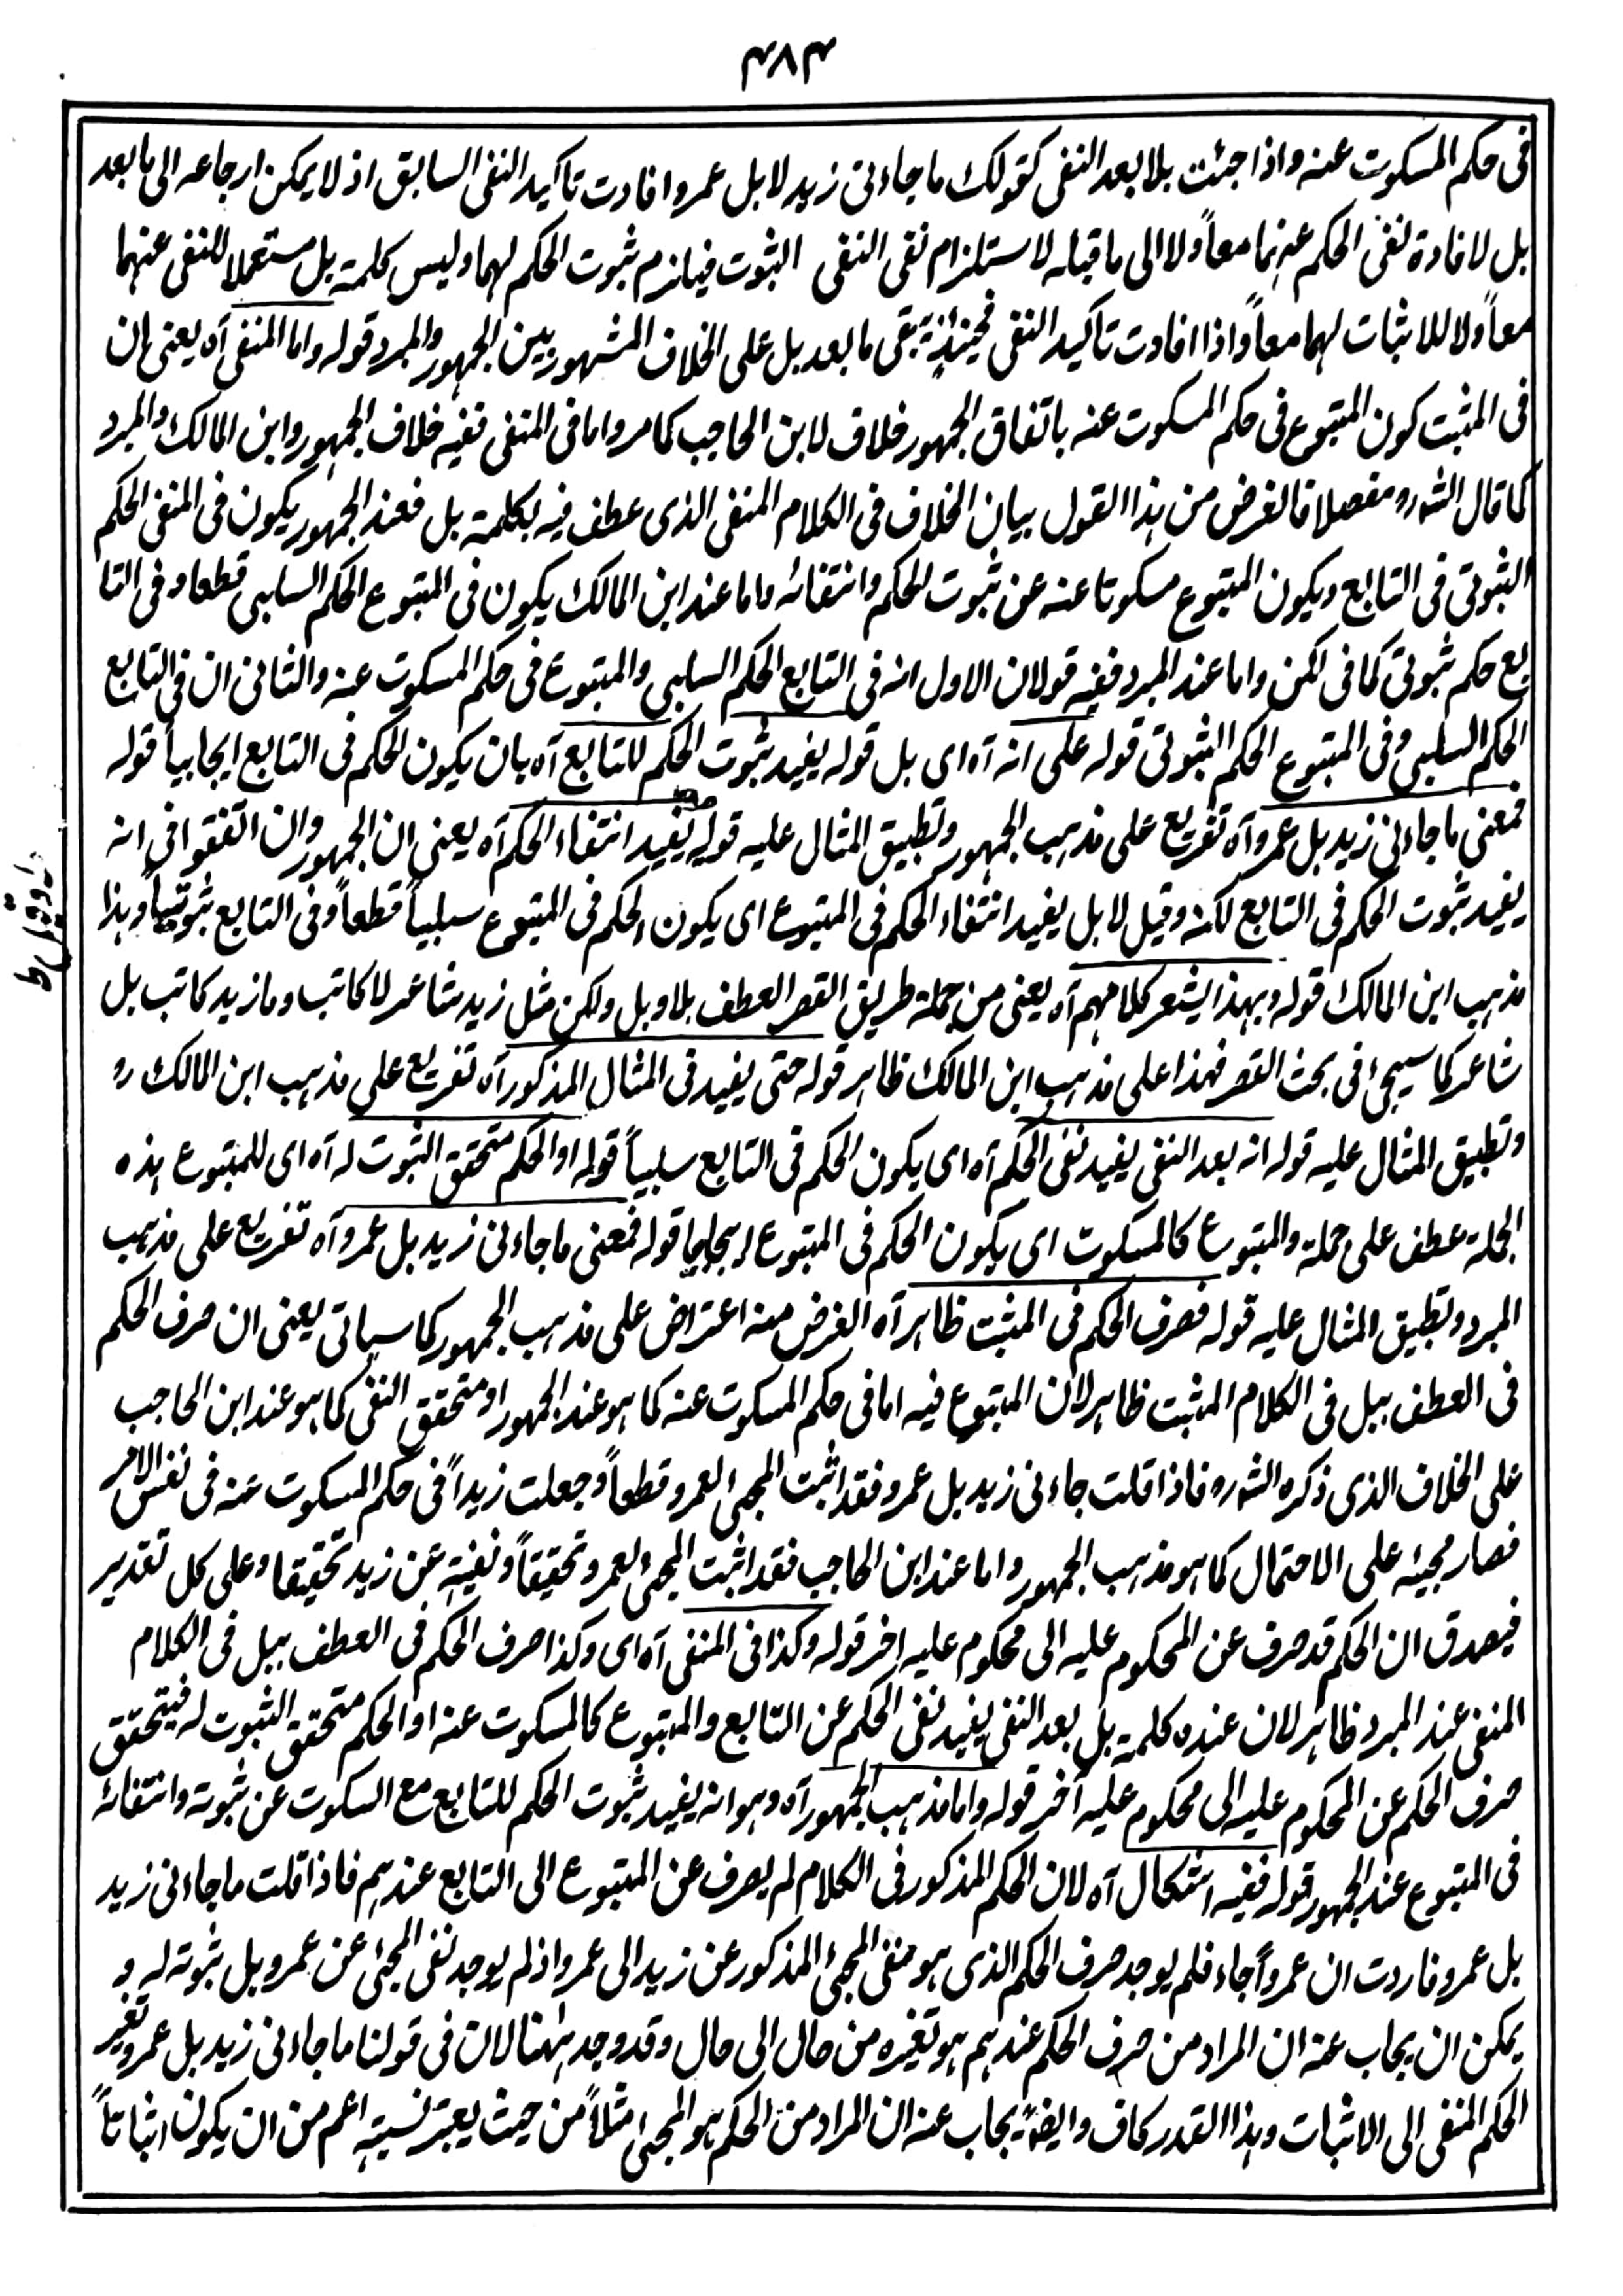 ۴۸۴
فى حكم المسكوت عنه واذا جئت بلا بعد النفى كقولك ما جاءنى زيد لا بل عمرو افادت تاكيد النفى السابق اذ لا يمكن ارجاعه الى ما بعد
بل لافادة نفى الحكم عنهما معاً ولا الى ما قبله لاستلزام نفى النفى الثبوت فيلزم ثبوت الحكم لهما وليس كلمة بل مستعملا للنفى عنهما
معاً ولا للاثبات لهما معاً واذا افادت تاكيد النفى فحينئذ يبقى ما بعد بل على الخلاف المشهور بين الجمهور والمبرد قوله واما المنفى آه يعنى ان
فى المثبت كون المتبوع فى حكم المسكوت عنه باتفاق الجمهور خلاف لابن الحاجب كما مر واما فى المنفى ففيه خلاف الجمهور وابن المالك والمبرد
كما قال الشه ره مفصلا فالغرض من هذا القول بيان الخلاف فى الكلام المنفى الذى عطف فيه بكلمة بل فعند الجمهور يكون فى المنفى الحكم
الثبوتى فى التابع ويكون المتبوع مسكوتا عنه عن ثبوت الحكم وانتفائه واما عند ابن المالك يكون فى المتبوع الحكم السلبى قطعا وفى التا
بع حكم ثبوتى كما فى لكن واما عند المبرد ففيه قولان الاول انه فى التابع الحكم السلبى والمتبوع فى حكم المسكوت عنه والثانى ان فى التابع
الحكم السلبى وفى المتبوع الحكم الثبوتى قوله على انه آه اى بل قوله يفيد ثبوت الحكم للتابع آه بان يكون الحكم فى التابع ايجابياً قوله
فمعنى ما جاءنى زيد بل عمرو آه تفريع على مذهب الجمهور وتطبيق المثال عليه قوله يفيد انتفاء الحكم آه يعنى ان الجمهور وان اتفقوا فى انه
يفيد ثبوت الحكم فى التابع لكنه وقيل لا بل يفيد انتفاء الحكم فى المتبوع اى يكون الحكم فى المتبوع سلبياً قطعاً وفى التابع ثبوتياً وهذا
مذهب ابن المالك قوله وبهذا يشعر كلامهم آه يعنى من جملة طريق القصر العطف بلا وبل ولكن مثل زيد شاعر لا كاتب وما زيد كاتب بل
شاعر كما سيجئ فى بحث القصر فهذا على مذهب ابن المالك ظاهر قوله حتى يفيد فى المثال المذكور آه تفريع على مذهب ابن المالك ره
وتطبيق المثال عليه قوله انه بعد النفى يفيد نفى الحكم آه اى يكون الحكم فى التابع سلبياً قوله او الحكم متحقق الثبوت له آه اى للمتبوع هذه
الجملة عطف على جملة والمتبوع كالمسكوت اى يكون الحكم فى المتبوع ايجابيا قوله فمعنى ما جاءنى زيد بل عمرو آه تفريع على مذهب
المبرد وتطبيق المثال عليه قوله فصرف الحكم فى المثبت ظاهر آه الغرض منه اعتراض على مذهب الجمهور كما سياتى يعنى ان صرف الحكم
فى العطف ببل فى الكلام المثبت ظاهر لان المتبوع فيه اما فى حكم المسكوت عنه كما هو عند الجمهور او متحقق النفى كما هو عند ابن الحاجب
على الخلاف الذى ذكره الشه ره فاذا قلت جاءنى زيد بل عمرو فقد اثبت المجئ لعمرو قطعاً وجعلت زيداً فى حكم المسكوت عنه فى نفس الامر
فصار مجيئه على الاحتمال كما هو مذهب الجمهور واما عند ابن الحاجب فقد اثبت المجئ لعمرو تحقيقاً ونفيته عن زيد تحقيقا وعلى كل تقدير
فيصدق ان الحكم قد صرف عن المحكوم عليه الى محكوم عليه اخر قوله وكذا فى المنفى آه اى وكذا صرف الحكم فى العطف ببل فى الكلام
المنفى عند المبرد ظاهر لان عنده كلمة بل بعد النفى يفيد نفى الحكم عن التابع والمتبوع كالمسكوت عنه او الحكم متحقق الثبوت له فيتحقق
صرف الحكم عن المحكوم عليه الى محكوم عليه آخر قوله واما مذهب الجمهور آه وهو انه يفيد ثبوت الحكم للتابع مع السكوت عن ثبوته وانتفائه
فى المتبوع عند الجمهور قوله ففيه اشكال آه لان الحكم المذكور فى الكلام لم يصرف عن المتبوع الى التابع عندهم فاذا قلت ما جاءنى زيد
بل عمرو فاردت ان عمرواً جاء فلم يوجد صرف الحكم الذى هو منفى المجئ المذكور عن زيد الى عمرو اذ لم يوجد نفى المجئ عن عمرو بل ثبوته له و
يمكن ان يجاب عنه ان المراد من صرف الحكم عندهم هو تغيره من حال الى حال وقد وجد ههنا لان فى قولنا ما جاءنى زيد بل عمرو تغير
الحكم المنفى الى الاثبات وهذا القدر كاف وايضاً يجاب عنه ان المراد من الحكم هو المجئ مثلاً من حيث يعتبر نسبته اعم من ان يكون اثباتاً